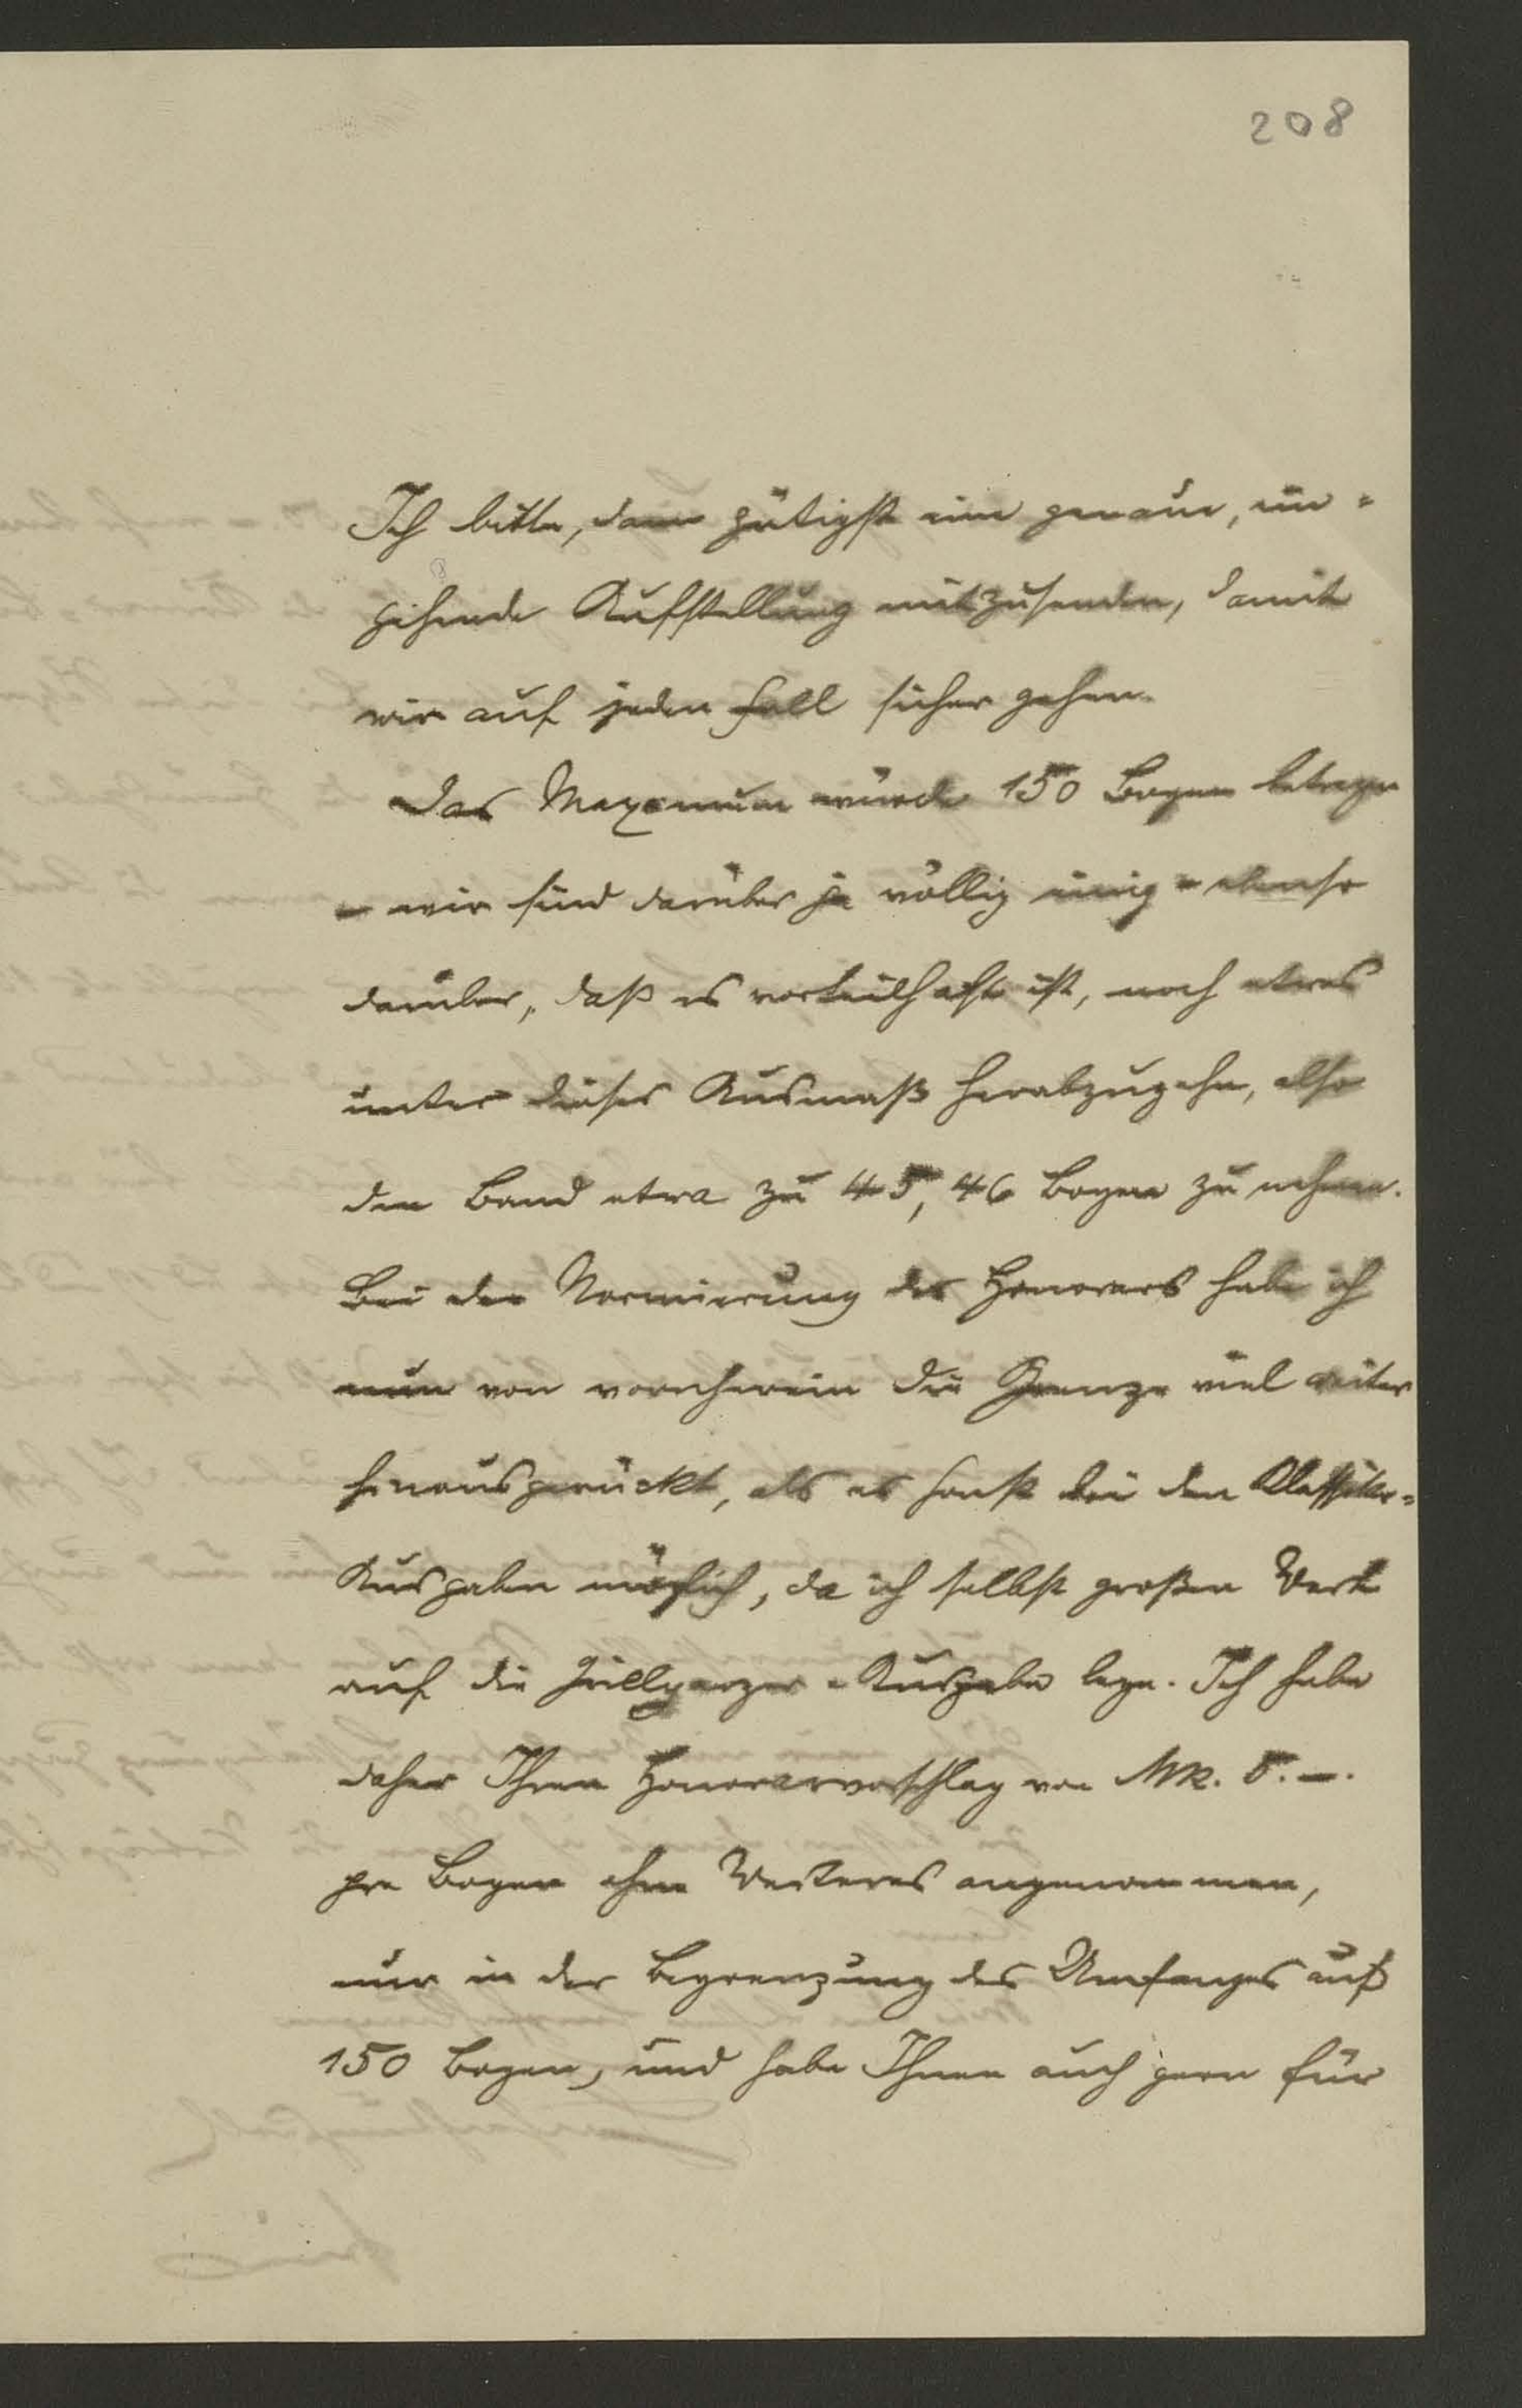 208
Ich bitte, dann gütigst eine genaue, ein=
gehende Aufstellung mitzusenden, damit
wir auf jeden Fall sicher gehen.
Das Maximum würde 150 Bogen betragen
– wir sind darüber ja völlig einig – ebenso
darüber, daß es vorteilhaft ist, noch etwas
unter dieses Ausmaß herabzugehn, also
den Band etwa zu 45, 46 Bogen zu nehmen.
Bei der Normierung des Honorars habe ich
nun von vornherein die Grenze viel weiter
hinausgerückt, als es sonst bei den Klassiker=
Ausgaben möglich, da ich selbst großen Wert
auf die Grillparzer-Ausgabe lege. Ich habe
daher Ihren Honorarvorschlag von Mk. 5.–.
pro Bogen ohne Weiteres angenommen,
nur in der Begrenzung des Umfanges auf
150 Bogen, und habe Ihnen auch gern für